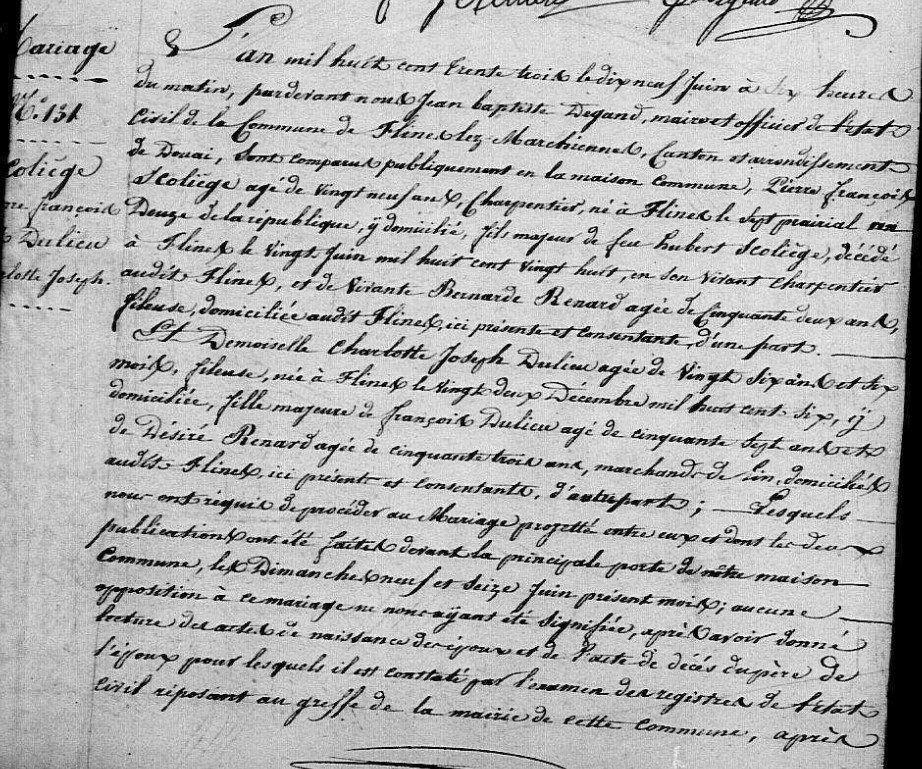 Mariage
N.° 131
Scoliège
Pierre françois
& Dulieu
Charlotte Joseph.
L'an mil huit cent trente trois le dix neuf Juin à six heures
du matin, pardevant nous Jean baptiste Degand, maire et officier de l'état
Civil de la Commune de Flines lez-Marchiennes, Canton et arrondissement
de Douai, sont comparus publiquement en la maison commune, Pierre François
Scoliège agé de vingt neuf ans, Charpentier, né à Flines le sept prairial an
Douze de la république, ÿ domicilié, fils majeur de feu hubert Scoliège, décédé
à Flines le vingt Juin mil huit cent vingt huit, en son vivant charpentier
audit Flines, et de vivante Bernarde Renard agée de Cinquante deux ans,
fileuse, domiciliée audit Flines, ici présente et consentante, d'une part.
Et Demoiselle Charlotte Joseph Dulieu agée de vingt six ans et six
mois, fileuse, née à Flines le vingt deux Décembre mil huit cent six, ÿ
domiciliée, fille majeure de françois Dulieu agé de cinquante sept ans et
de Désiré Renard agée de cinquante trois ans, marchands de lin, domiciliés
audit Flines, ici présents et consentants, d'autre part; Lesquels
nous ont requis de procéder au Mariage projetté entre eux et dont les deux
publications ont été faites devant la principale porte de nôtre maison
Commune, les Dimanches neuf et seize Juin présent mois; aucune
opposition à ce mariage ne nous ayant été signifiée, après avoir donné
lecture des actes de naissance des époux et de l'acte de décés du père de
l'époux pour lesquels il est constaté par l'examen des registres de l'état
Civil réposant au greffe de la mairie de cette commune, après